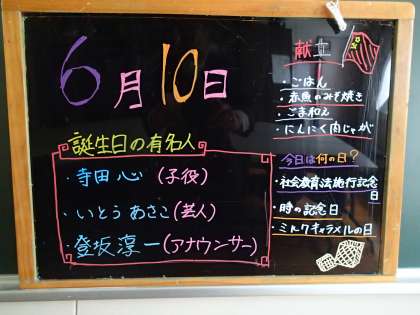 6月10日
誕生日の有名人
・寺田 心 (子役)
・いとう あさこ (芸人)
・登坂 淳一 (アナウンサー)
献立
・ごはん
・赤魚のみそ焼き
・ごま和え
・にんにく肉じゃが
今日は何の日？
・社会教育法施行記念日
・時の記念日
・ミルクキャラメルの日